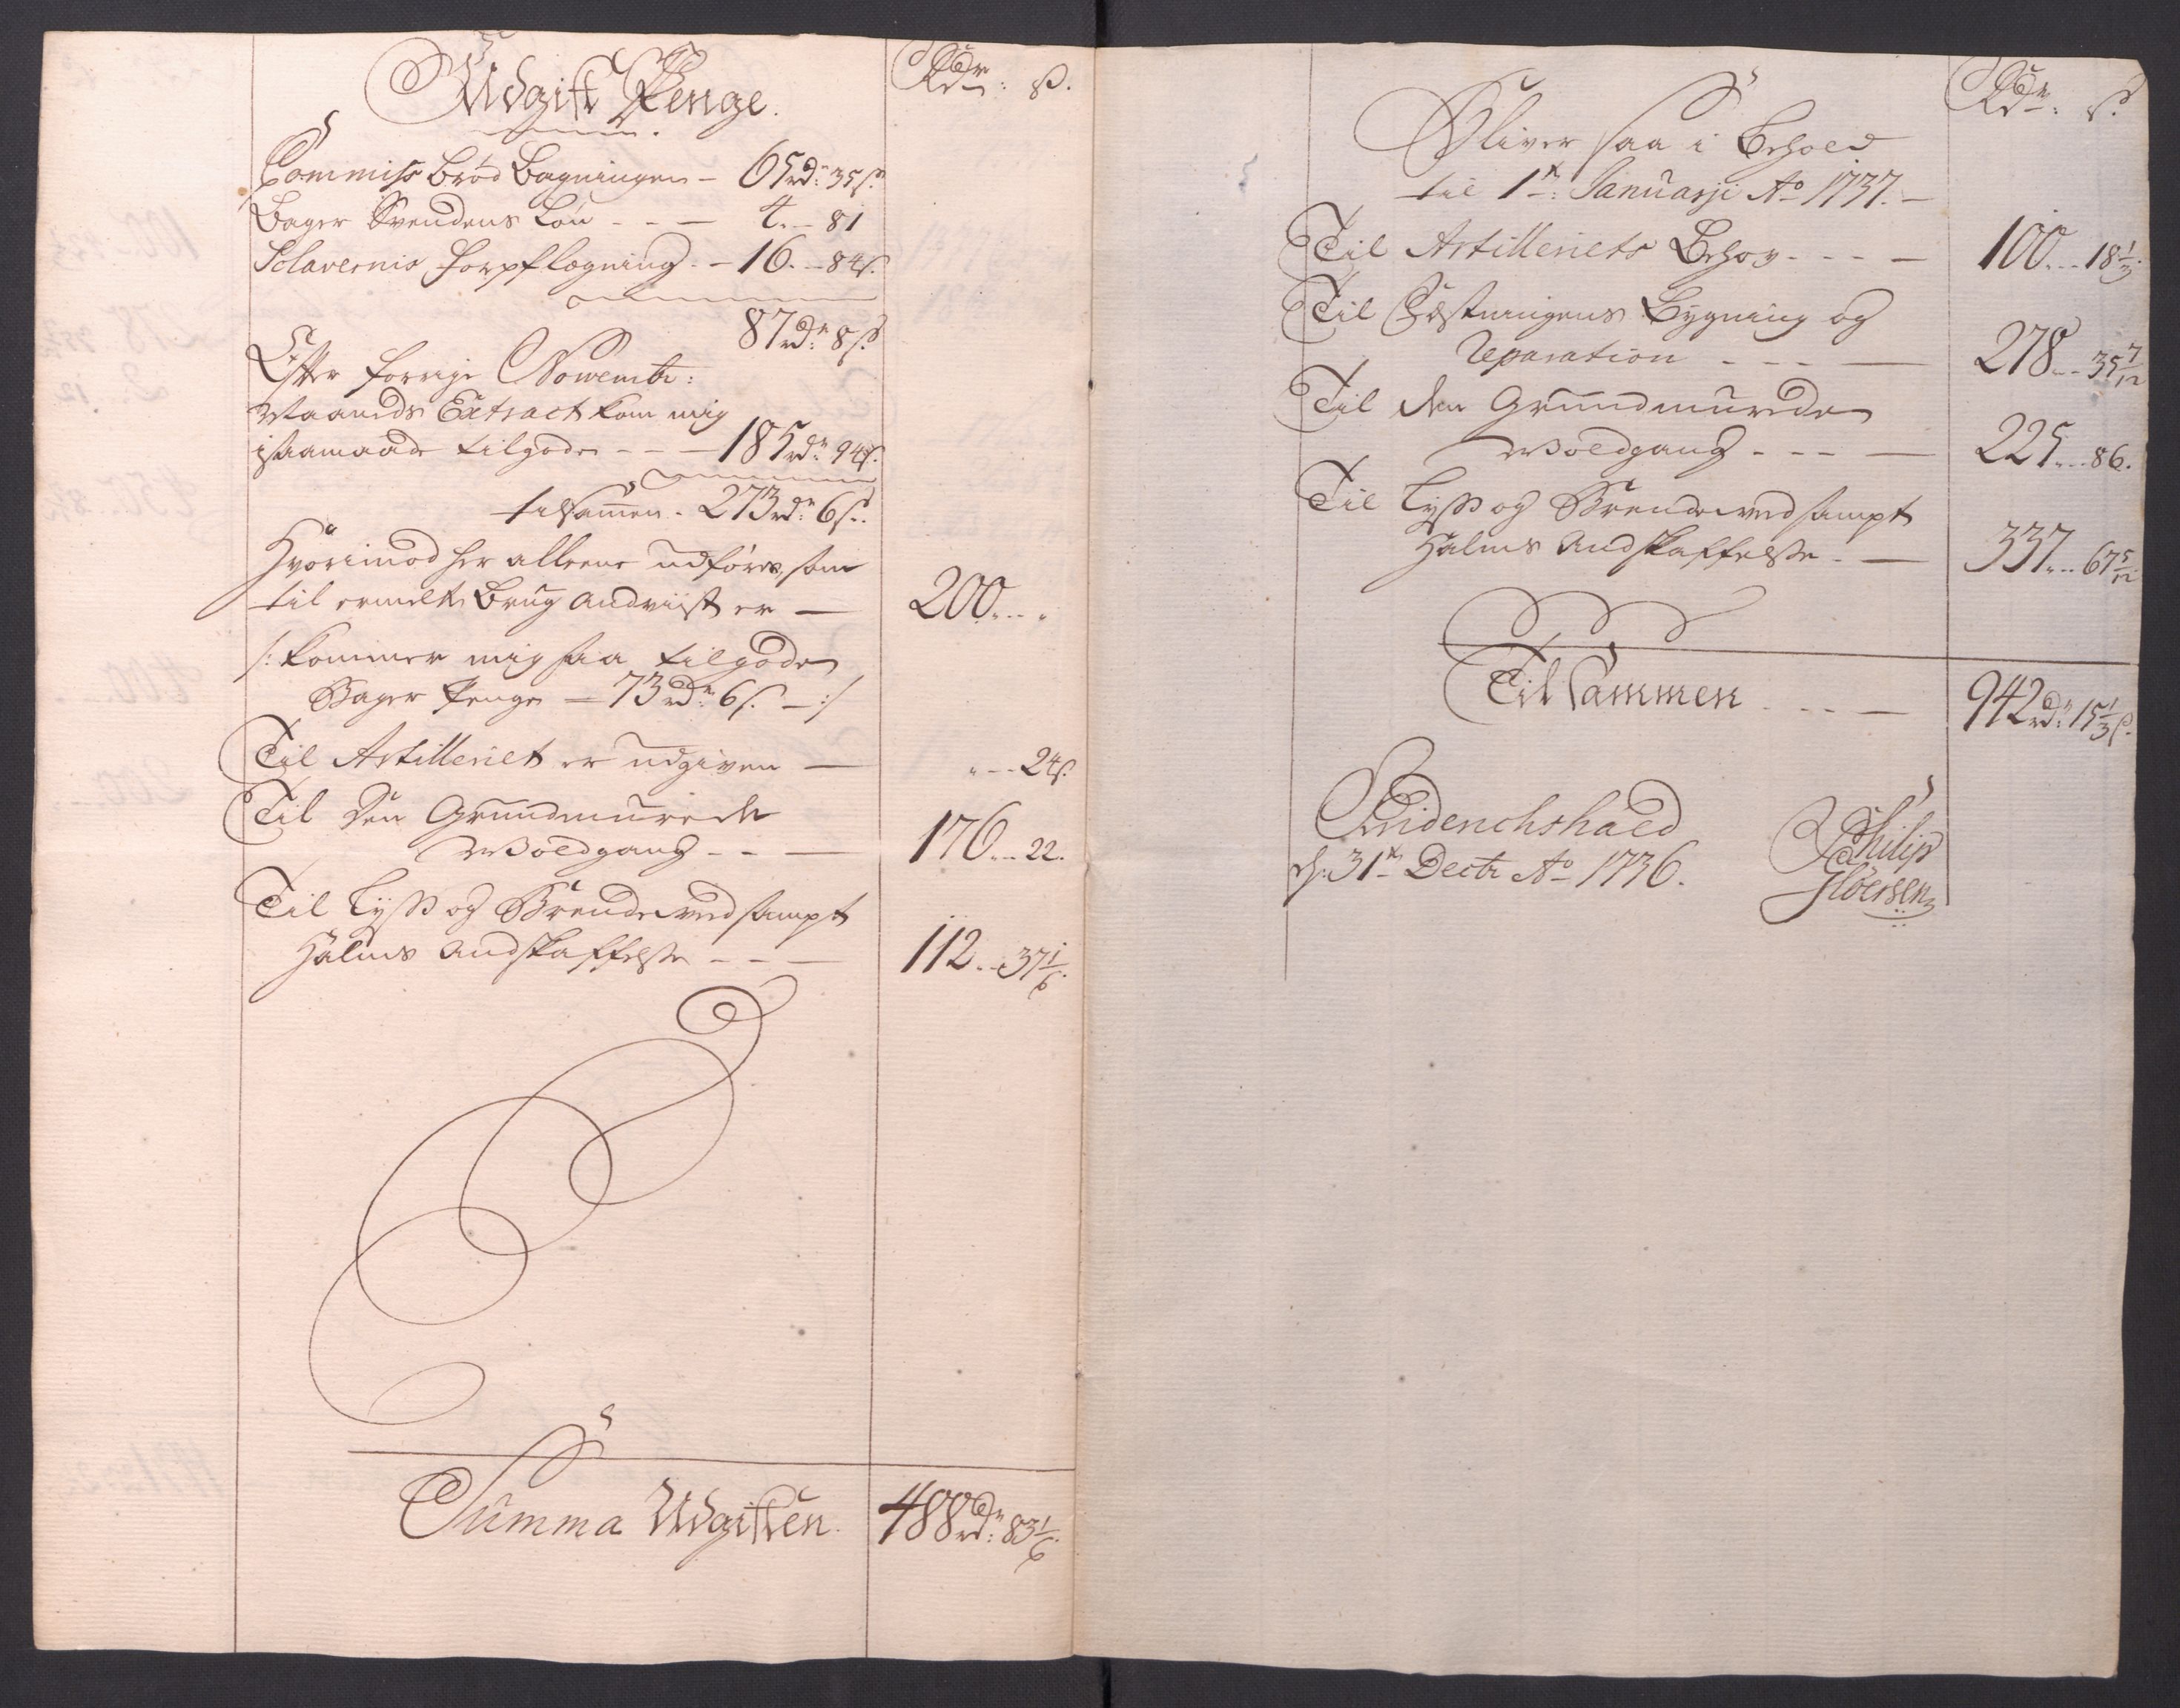 Udgift Penge.
Rdr: ß.
Commiss Brød Bagningen - 65rdr: 35ß.
Bager Svendens Løn - - - 4. - 81
Sclavernis Forpflegning - - 16. - 84ß.
87rdr: 8ß
Efter forrige Novembr:
Maaneds Extract kom mig
i saamaade tilgode - - - 185rdr: 94ß.
tilsamen - 273rdr: 6ß.
Hvorimod her alleene udføres, som
til ermelte Brug andviist er - 200. . . "
/: kommer mig saa tilgode
Bager Penge - 73rdr: 6ß. - :/
Til Artilleriet er udgiven - " - - 24ß.
Til Den Grundmurede
Woldgang - - - 176. . . 22.
Til Lyss og Brendeved sampt
Halms Andskaffelse - - - 112. . . 37 1/6.
Summa Udgiften. 488rdr: 83 1/6.
Rdr: ß.
Bliver saa i Behold
til 1te: Januarji Ao 1737. -
Til Artilleriets Behov - - - - 100. . . 18 1/3.
Til Fæstningens Bygning og
Reparation - - - - 278. . . 35 7/12
Til den Grundmurede
Woldgang - - - - 225. . . 86.
Til Lyss og Brendeved sampt
Halms Andskaffelse - - 337. . . 67 5/12.
Tilsammen - - - - 942rdr: 15 1/3ß.
Fridenchshald
d: 31te Decbr Ao 1736.
Philip